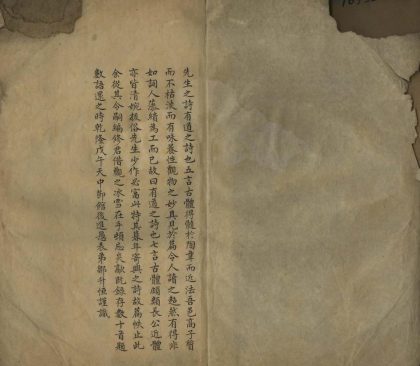 先生之詩有道之詩也五言古體得髓於陶韋而近法吾邑高子質
而不枯淡而有味養性觀物之妙具見於篇令人讀之超然有得非
如詞人藻繢為工而已故曰有道之詩也七言古體頗類長公近體
亦皆清婉拔俗先生少作必富此特其暮年寄興之詩故篇帙止此
余從其令嗣編修君借觀之冰雪在手頓忘炎歊既錄存數十首題
數語還之時乾隆戊午天中節館後進愚表弟鄒升恒謹識